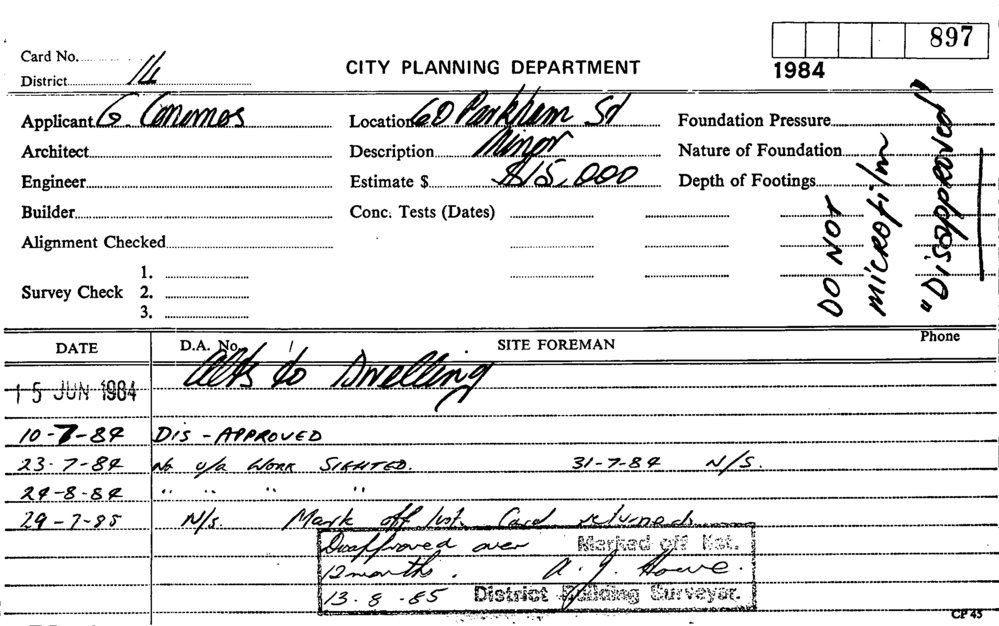 897
Card No.
District 14
CITY PLANNING DEPARTMENT
1984
Applicant G. Conomos
Location 60 Parkham St
Foundation Pressure
Architect
Description Minor
Nature of Foundation
Engineer
Estimate $ $15,000
Depth of Footings
Builder
Conc. Tests (Dates)
Alignment Checked
1.
Survey Check 2.
3.
DO NOT
microfilm
"Disapproved"
DATE D.A. No. SITE FOREMAN Phone
15 JUN 1984 Alts to Dwelling
10-7-84 DIS-APPROVED
23-7-84 No u/a WORK SIGHTED. 31-7-84 N/S.
24-8-84 " " " "
29-7-85 N/s. Mark off list. Card returned
Disapproved over Marked off list.
12 months. A. J. Howe.
13-8-85 District Building Surveyor.
CP 45